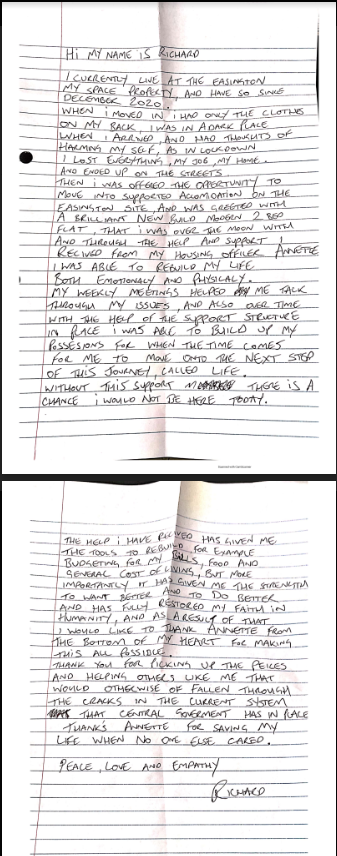 Hi MY NAME iS RICHARD
I CURRENTLY LIVE AT THE EASINGTON
MY SPACE PROPERTY, AND HAVE SO SINCE
DECEMBER 2020.
WHEN i MOVED IN i HAD ONLY THE CLOTHES
ON MY BACK, I WAS IN A DARK PLACE
WHEN I ARRIVED, AND HAD THOUGHTS OF
HARMING MY SELF, AS IN LOCKDOWN
I LOST EVERYTHING, MY JOB, MY HOME.
AND ENDED UP ON THE STREETS.
THEN i WAS OFFERED THE OPPERTUNITY TO
MOVE INTO SUPPORTED ACCOMODATION ON THE
EASINGTON SITE, AND WAS GREETED WITH
A BRILLIANT NEW BUILD MODERN 2 BED
FLAT, THAT i WAS OVER THE MOON WITH
AND THROUGH THE HELP AND SUPPORT I
RECIVED FROM MY HOUSING OFFICER ANNETTE
I WAS ABLE TO REBUILD MY LIFE
BOTH EMOTIONALY AND PHYSICALY.
MY WEEKLY MEETINGS HELPED ME TALK
THROUGH MY ISSUES, AND ALSO OVER TIME
WITH THE HELP OF THE SUPPORT STRUCTURE
IN PLACE i WAS ABLE TO BUILD UP MY
POSSESIONS FOR WHEN THE TIME COMES
FOR ME TO MOVE ONTO THE NEXT STEP
OF THIS JOURNEY, CALLED LIFE.
WITHOUT THIS SUPPORT THERE IS A
CHANCE i WOULD NOT BE HERE TODAY.
THE HELP i HAVE RECIVED HAS GIVEN ME
THE TOOLS TO REBUILD, FOR EXAMPLE
BUDGETING FOR MY BILLS, FOOD AND
GENERAL COST OF LIVING, BUT MORE
IMPORTANTLY IT HAS GIVEN ME THE STRENGTH
TO WANT BETTER AND TO DO BETTER
AND HAS FULLY RESTORED MY FAITH IN
HUMANITY, AND AS A RESULT OF THAT
I WOULD LIKE TO THANK ANNETTE FROM
THE BOTTOM OF MY HEART FOR MAKING
THIS ALL POSSIBLE.
THANK YOU FOR PICKING UP THE PEICES
AND HELPING OTHERS LIKE ME THAT
WOULD OTHERWISE OF FALLEN THROUGH
THE CRACKS IN THE CURRENT SYSTEM
THAT CENTRAL GOVERMENT HAS IN PLACE
THANKS ANNETTE FOR SAVING MY
LIFE WHEN NO ONE ELSE CARED.
PEACE, LOVE AND EMPATHY
RICHARD